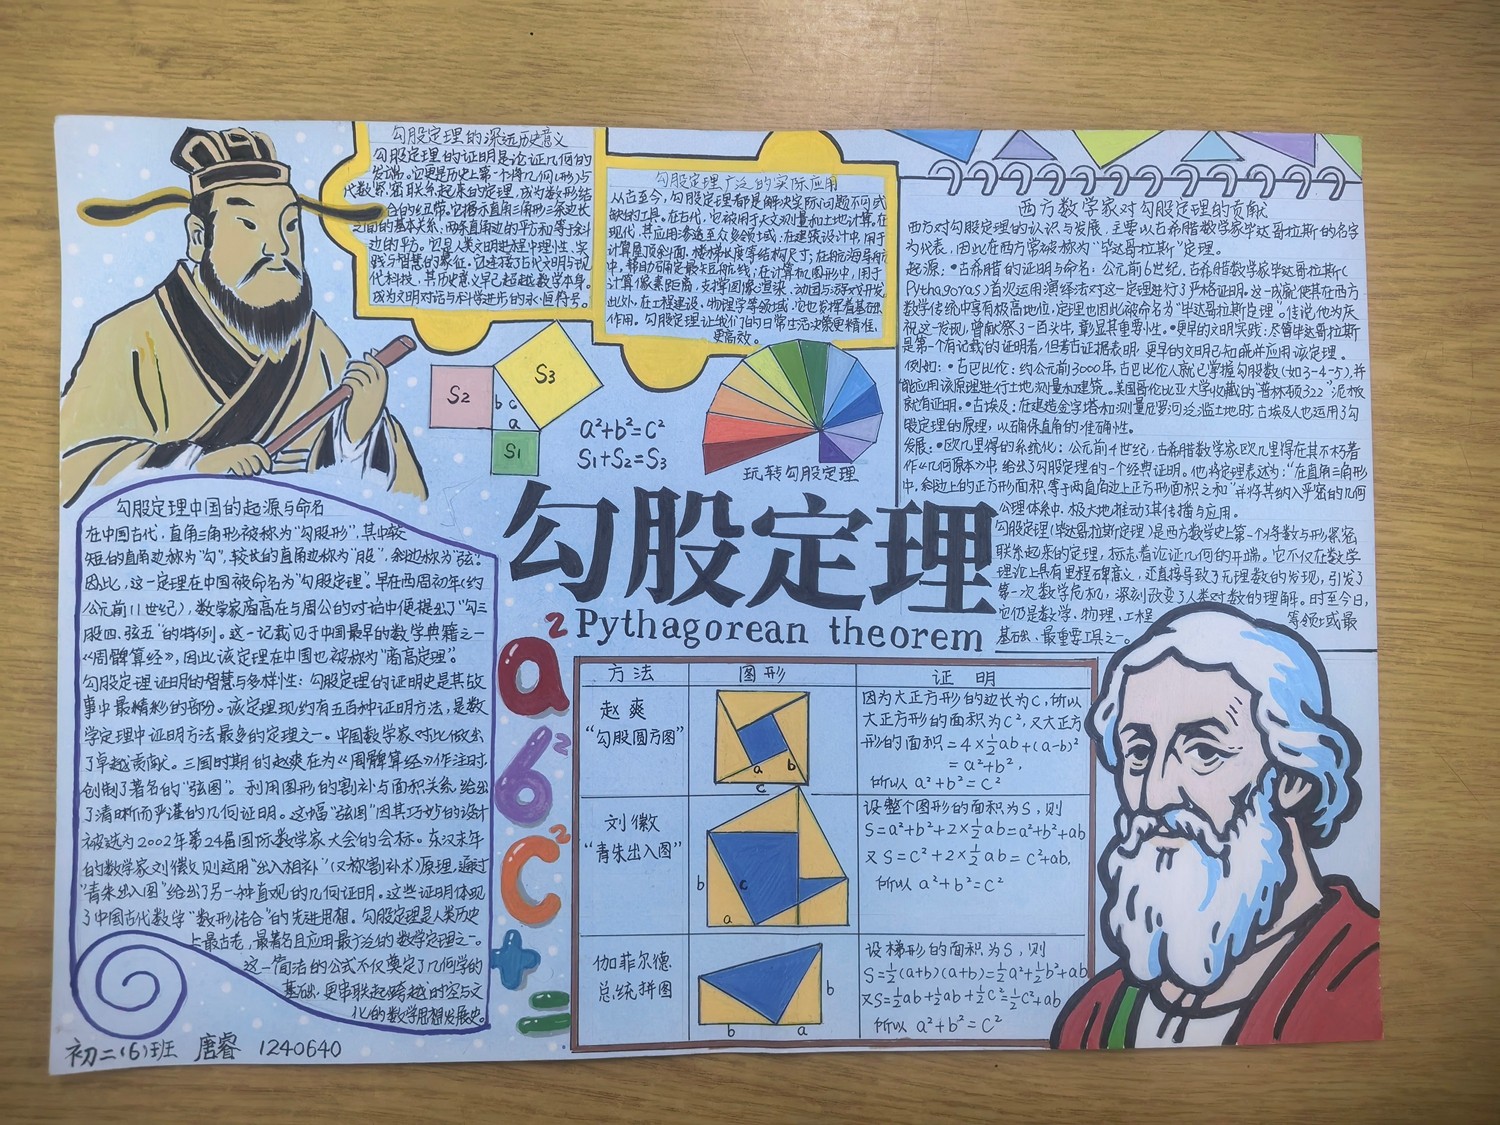 勾股定理的深远历史意义
勾股定理的证明是论证几何的
发端。它更是历史上第一个将几何(形)与
代数紧密联系起来的定理,成为数形结
合的纽带。它揭示直角三角形三条边长
之间的基本关系,两条直角边的平方和等于斜
边的平方。它是人类文明进程中理性、实
践与智慧的象征。它连接古代文明与现
代科技,其历史意义早已超越数学本身。
成为文明对话与科学进步的永恒符号。
勾股定理广泛的实际应用
从古至今,勾股定理都是解决实际问题不可或
缺的工具。在古代,它被用于天文测量和土地计算。在
现代,其应用渗透至众多领域:在建筑设计中,用于
计算屋顶斜面、楼梯长度等结构尺寸;在航海导航
中,帮助确定最短航线;在计算机图形中,用于
计算像素距离,支撑图像渲染、动画与游戏开发。
此外,在工程建设、物理学等领域,它也发挥着基础
作用。勾股定理让我们的日常生活决策更精准、
更高效。
西方数学家对勾股定理的贡献
西方对勾股定理的认识与发展,主要以古希腊数学家毕达哥拉斯的名字
为代表,因此在西方常被称为“毕达哥拉斯”定理。
起源:•古希腊的证明与命名:公元前6世纪,古希腊数学家毕达哥拉斯(
Pythagoras)首次运用演绎法对这一定理进行了严格证明。这一成就使其在西方
数学传统中享有极高地位,定理也因此被命名为“毕达哥拉斯定理”。传说他为庆
祝这一发现,曾献祭了一百头牛,彰显其重要性。•更早的文明实践:尽管毕达哥拉斯
是第一个有记载的证明者,但考古证据表明,更早的文明已知晓并应用该定理。
例如:•古巴比伦:约公元前3000年,古巴比伦人就已掌握勾股数(如3-4-5),并
能应用该原理进行土地测量和建筑。美国哥伦比亚大学收藏的“普林顿322”泥板
就有证明。•古埃及:在建造金字塔和测量尼罗河泛滥土地时,古埃及人也运用了勾
股定理的原理,以确保直角的准确性。
发展:•欧几里得的系统化:公元前4世纪,古希腊数学家欧几里得在其不朽著
作《几何原本》中,给出了勾股定理的一个经典证明。他将定理表述为:“在直角三角形
中,斜边上的正方形面积等于两直角边上正方形面积之和”并将其纳入严密的几何
公理体系中,极大地推动了其传播与应用。
勾股定理(毕达哥拉斯定理)是西方数学史上第一个将数与形紧密
联系起来的定理,标志着论证几何的开端。它不仅在数学
理论上具有里程碑意义,还直接导致了无理数的发现,引发了
第一次数学危机,深刻改变了人类对数的理解。时至今日,
它仍是数学、物理、工程 等领域最
基础、最重要工具之一。
S2
S3
b c
a
S1
a²+b²=c²
S1+S2=S3
玩转勾股定理
勾股定理
Pythagorean theorem
勾股定理中国的起源与命名
在中国古代,直角三角形被称为“勾股形”,其中较
短的直角边称为“勾”,较长的直角边称为“股”,斜边称为“弦”。
因此,这一定理在中国被命名为“勾股定理”。早在西周初年(约
公元前11世纪),数学家商高在与周公的对话中便提出了“勾三
股四、弦五”的特例。这一记载见于中国最早的数学典籍之一
《周髀算经》,因此该定理在中国也被称为“商高定理”。
勾股定理证明的智慧与多样性:勾股定理的证明史是其故
事中最精彩的部分。该定理现约有五百种证明方法,是数
学定理中证明方法最多的定理之一。中国数学家对此做出
了卓越贡献。三国时期的赵爽在为《周髀算经》作注时,
创制了著名的“弦图”。利用图形的割补与面积关系,给出
了清晰而严谨的几何证明。这幅“弦图”因其巧妙的设计
被选为2002年第24届国际数学家大会的会标。东汉末年
的数学家刘徽又则运用“出入相补”(又称割补术)原理,通过
“青朱出入图”给出了另一种直观的几何证明。这些证明体现
了中国古代数学“数形结合”的先进思想。勾股定理是人类历史
上最古老,最著名且应用最广泛的数学定理之一。
这一简洁的公式不仅奠定了几何学的
基础,更串联起跨越时空与文
化的数学思想发展史。
初二(6)班 唐睿 1240640
a²
b²
c²
+
=
方法 图形 证明
赵爽
“勾股圆方图”
a b
c
因为大正方形的边长为c,所以
大正方形的面积为c²,又大正方
形的面积=4×½ab+(a-b)²
=a²+b²,
所以 a²+b²=c²
刘徽
“青朱出入图”
b c
a
设整个图形的面积为S,则
S=a²+b²+2×½ab=a²+b²+ab
又S=c²+2×½ab=c²+ab,
所以 a²+b²=c²
伽菲尔德
总统拼图
b
b a
设梯形的面积为S,则
S=½(a+b)(a+b)=½a²+½b²+ab
又S=½ab+½ab+½c²=½c²+ab
所以 a²+b²=c²